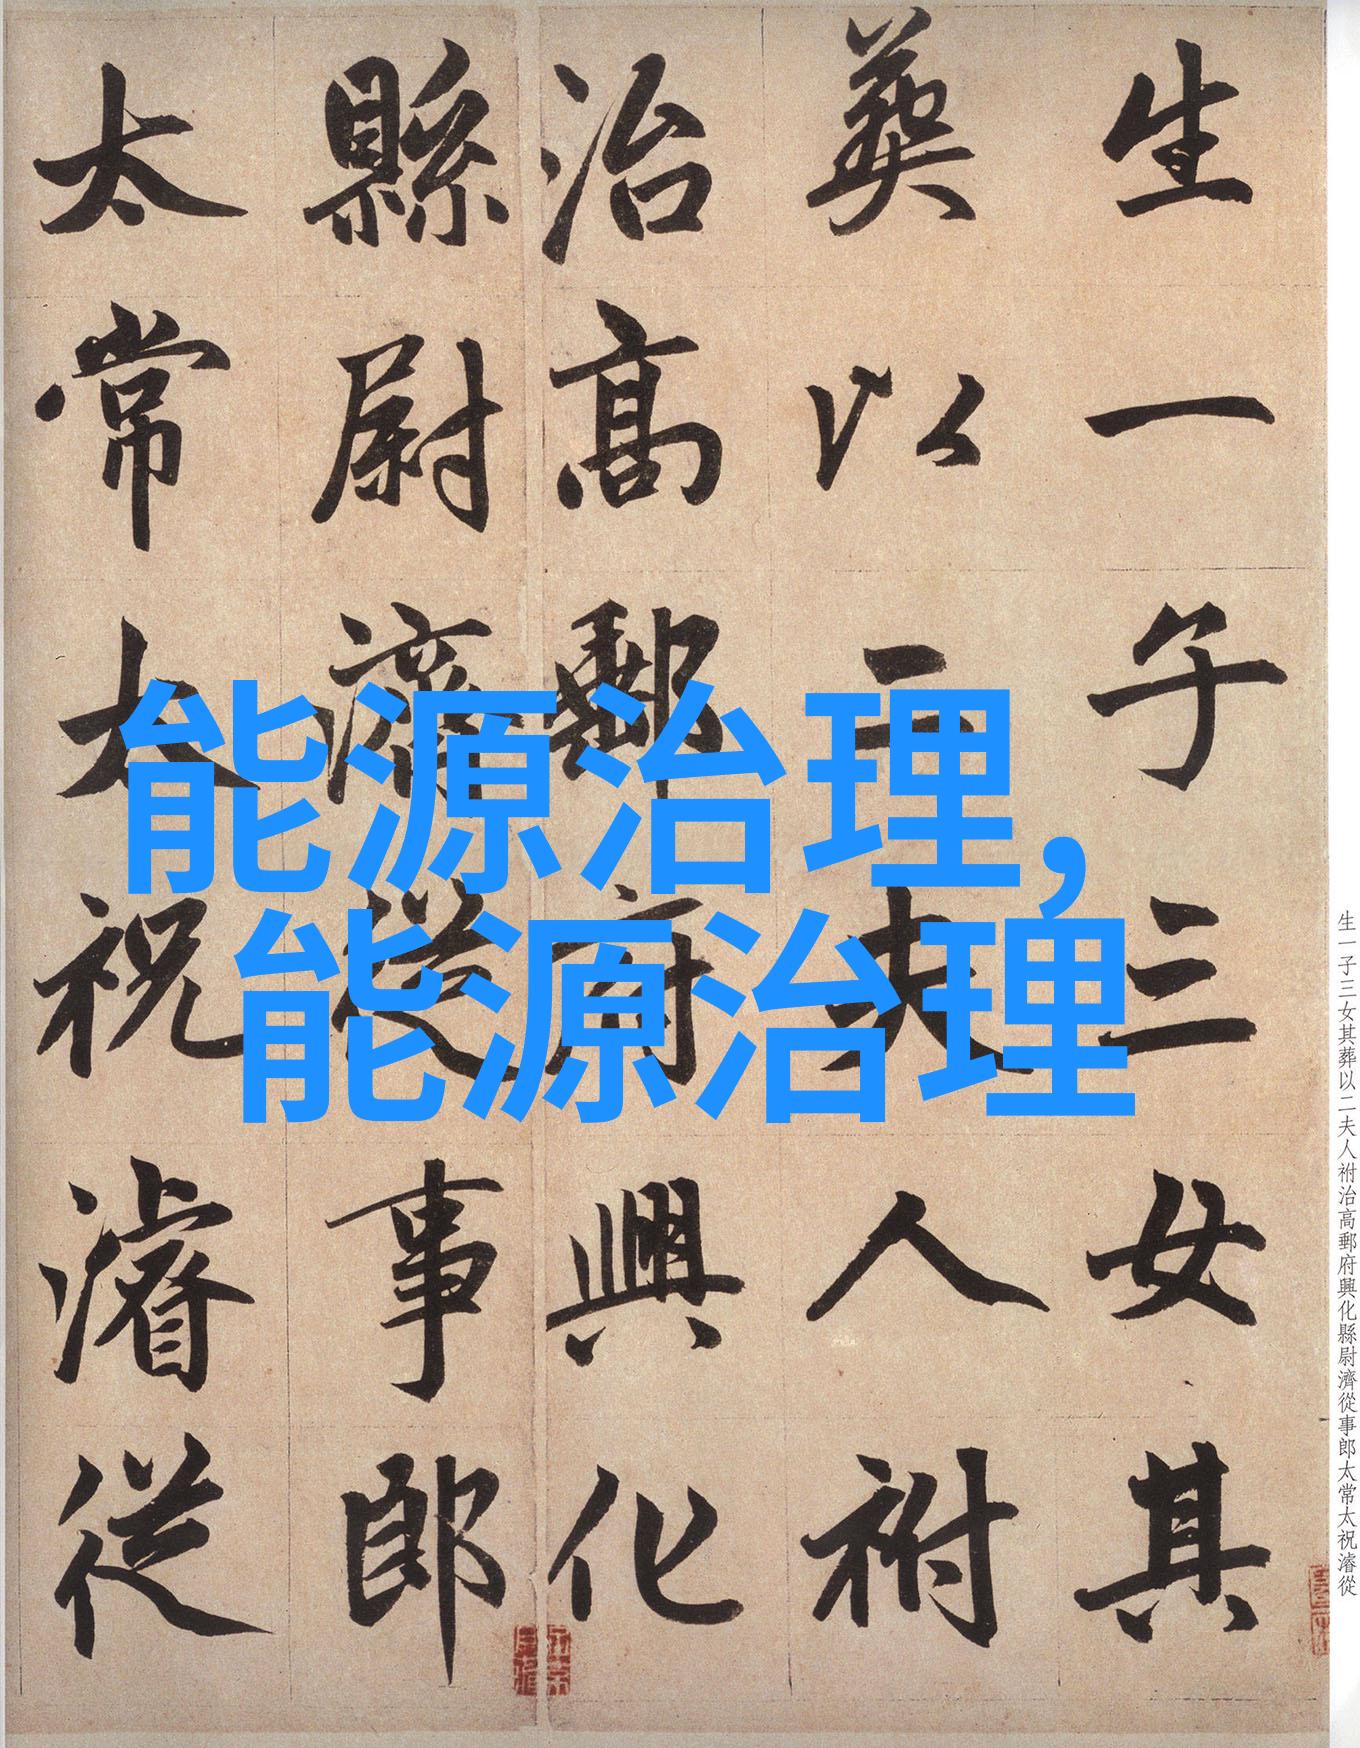 生一子三女其葬以二夫人祔治高郵府興化縣尉濟從事郎太常太祝濬從
生一子三女其
葬以二夫人祔
治高郵府興化
縣尉濟從事郎
太常太祝濬從
能源治理,
能源治理